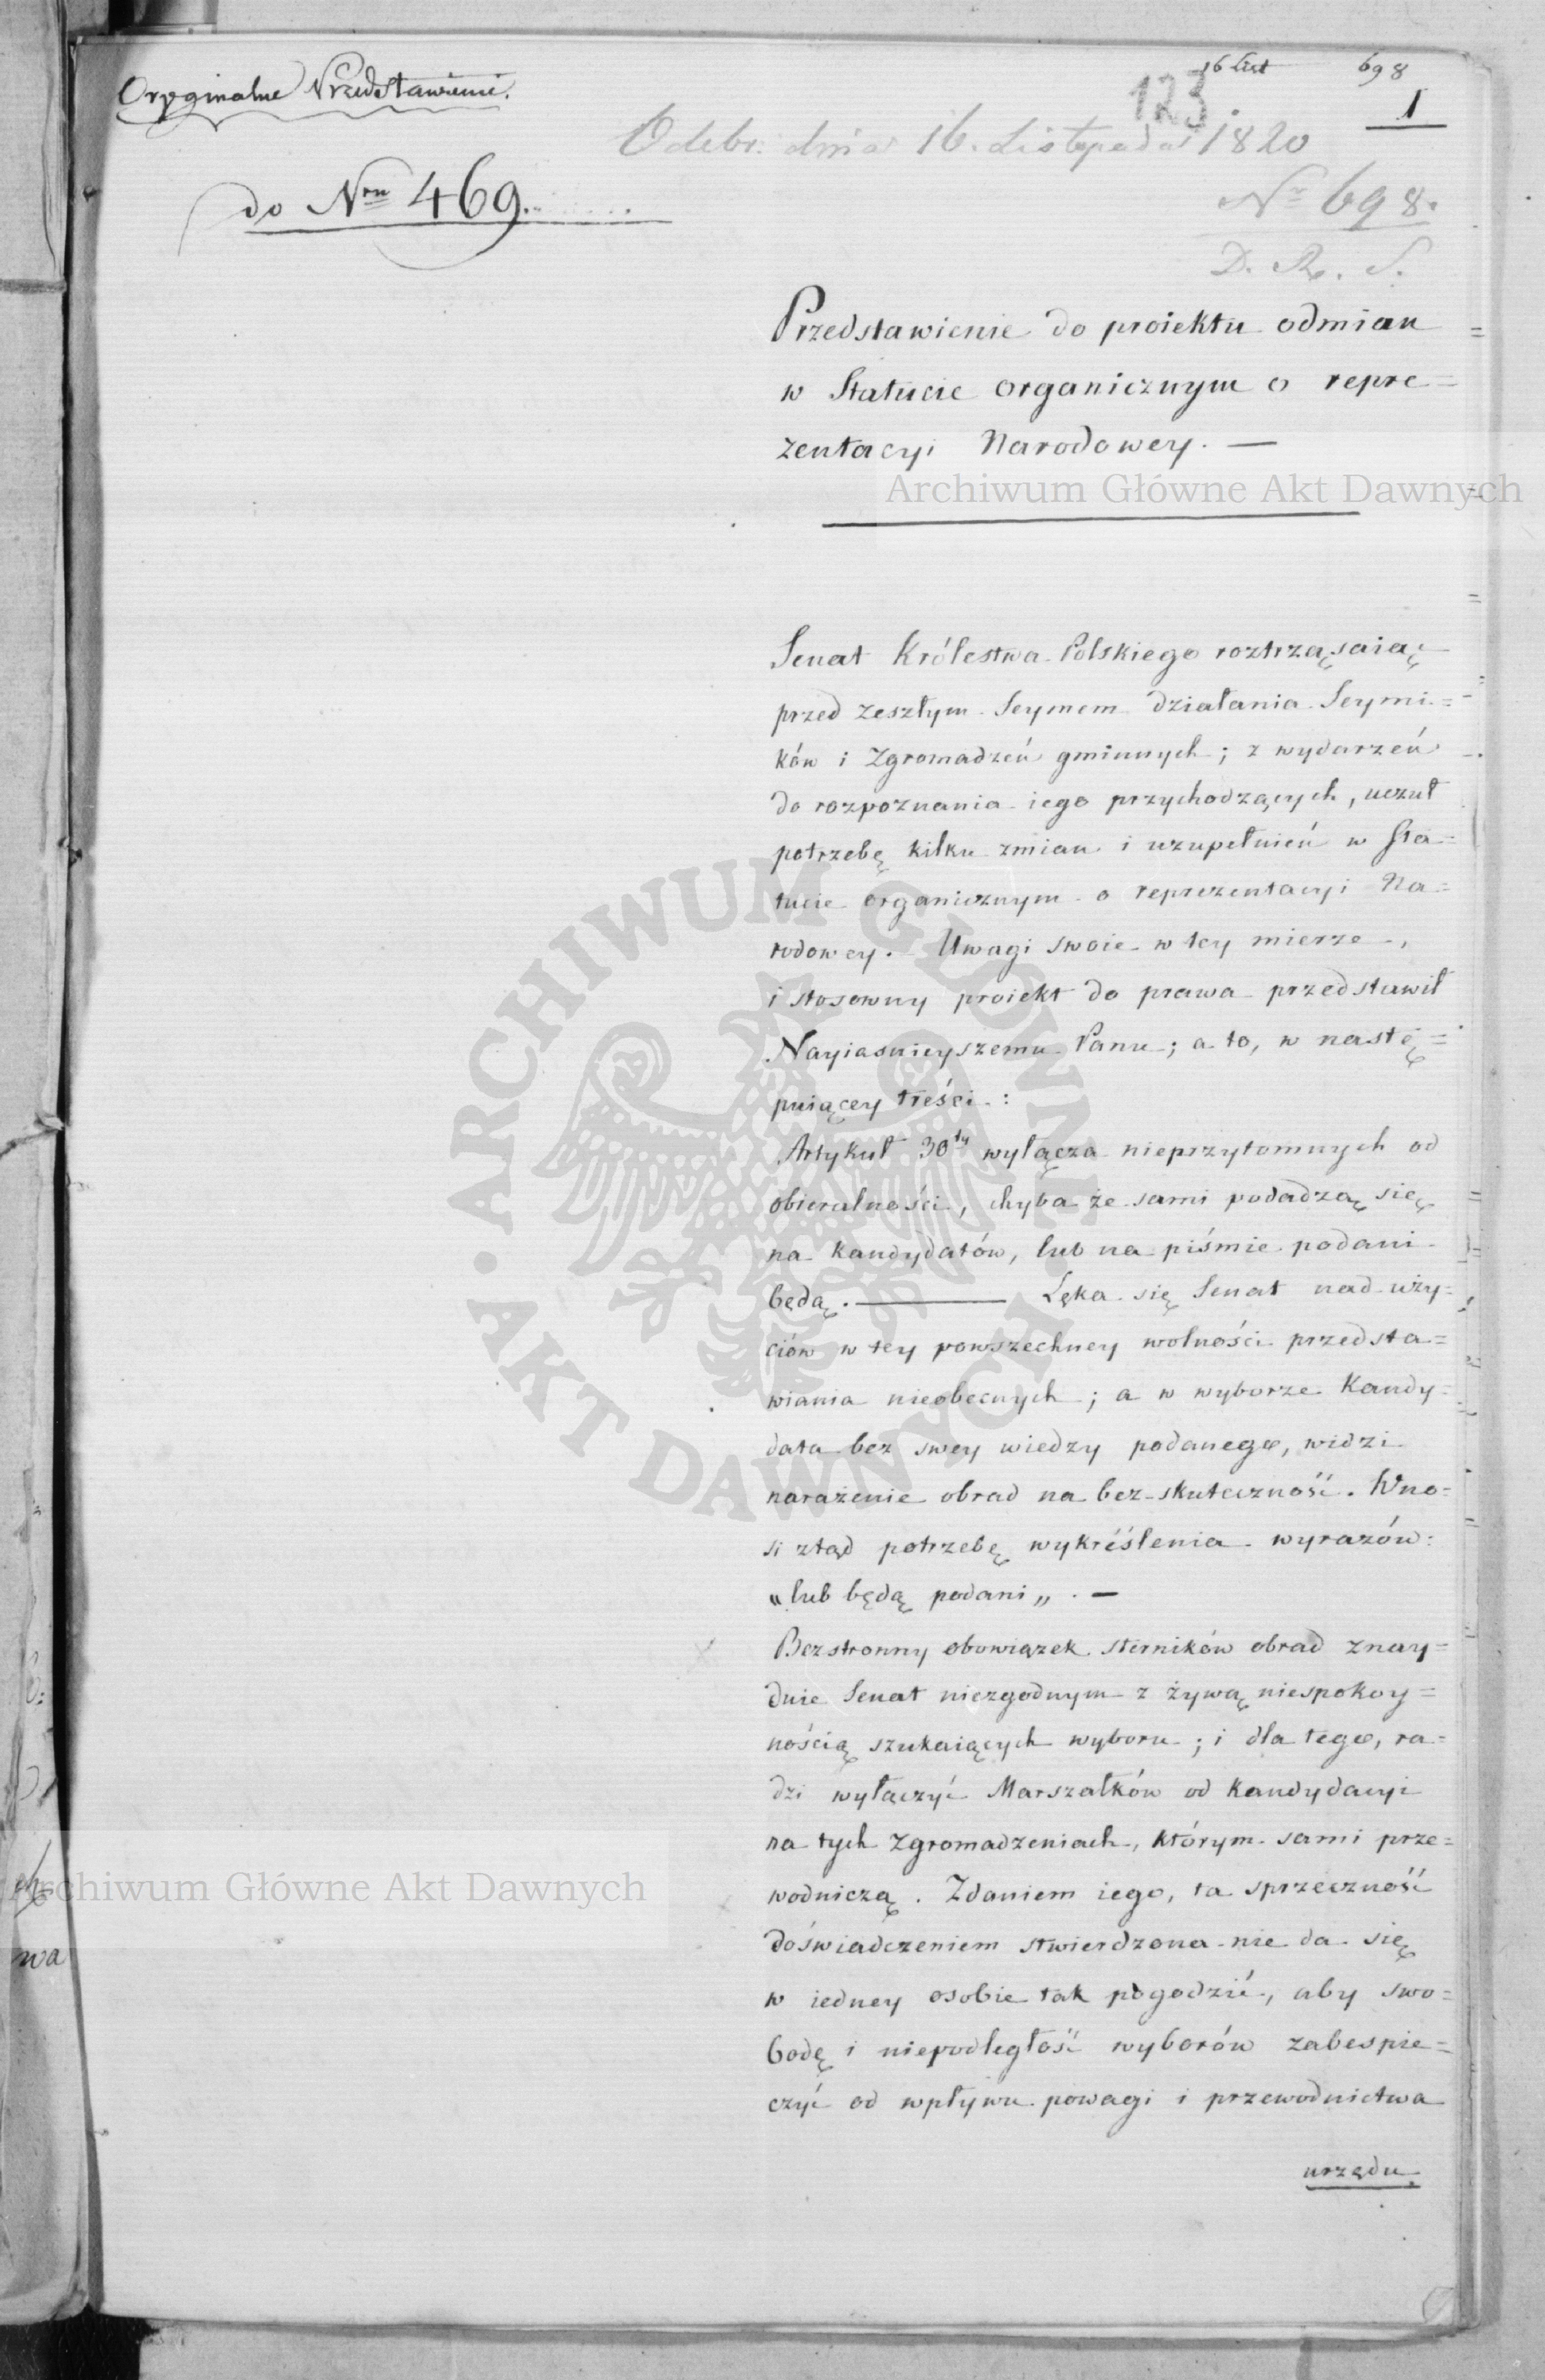 Oryginalne Przedstawienie.
16 List
698
123.
1
Odebr. dnia 16. Listopada 1820
do Nru 469.
Nr 698.
D. R. S.
Przedstawienie do proiektu odmian
w Statucie organicznym o repre=
zentacyi Narodowey. —
Archiwum Główne Akt Dawnych
Senat Królestwa Polskiego roztrząsaiąc
przed zeszłym Seymem działania Seymi=
ków i Zgromadzeń gminnych; z wydarzeń
do rozpoznania iego przychodzących, uczuł
potrzebę kilku zmian i uzupełnień w Sta=
tucie organicznym o reprezentacyi Na=
rodowey. Uwagi swoie w tey mierze,
i stosowny proiekt do prawa przedstawił
Nayiasnieyszemu Panu; a to, w nastę=
puiącey treści:
Artykuł 30ty wyłącza nieprzytomnych od
obieralności, chyba że sami podadzą się
na kandydatów, lub na piśmie podani
będą. — Lęka się Senat nad uży=
ciów w tey powszechney wolności przedsta=
wiania nieobecnych; a w wyborze Kandy=
data bez swey wiedzy podanego, widzi
narażenie obrad na bez-skuteczność. Wno=
si ztąd potrzebę wykréślenia wyrazów:
„lub będą podani„. —
Bezstronny obowiązek sterników obrad znay=
duie Senat niezgodnym z żywą niespokoy=
nością szukaiących wyboru; i dla tego, ra=
dzi wyłączyć Marszałków od Kandydacyi
na tych Zgromadzeniach, którym sami prze=
wodniczą. Zdaniem iego, ta sprzeczność
doświadczeniem stwierdzona nie da się
w iedney osobie tak pogodzić, aby swo=
bodę i niepodległość wyborów zabespie=
czyć od wpływu powagi i przewodnictwa
urzędu
ARCHIWUM GŁÓWNE AKT DAWNYCH
Archiwum Główne Akt Dawnych
wa